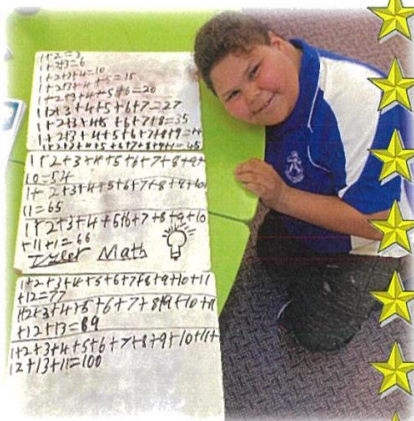 1+2=3
1+2+3=6
1+2+3+4=10
1+2+3+4+5=15
1+2+3+4+5+6=20
1+2+3+4+5+6+7=27
1+2+3+4+5+6+7+8=35
1+2+3+4+5+6+7+8+9=44
1+2+3+4+5+6+7+8+9+1=45
1+2+3+4+5+6+7+8+9+
10=54
1+2+3+4+5+6+7+8+9+10+
11=65
1+2+3+4+5+6+7+8+9+10
+11+1=66
Tyler Math
1+2+3+4+5+6+7+8+9+10+11
+12=77
1+2+3+4+5+6+7+8+9+10+11
+12+13=89
1+2+3+4+5+6+7+8+9+10+11+
12+13+11=100